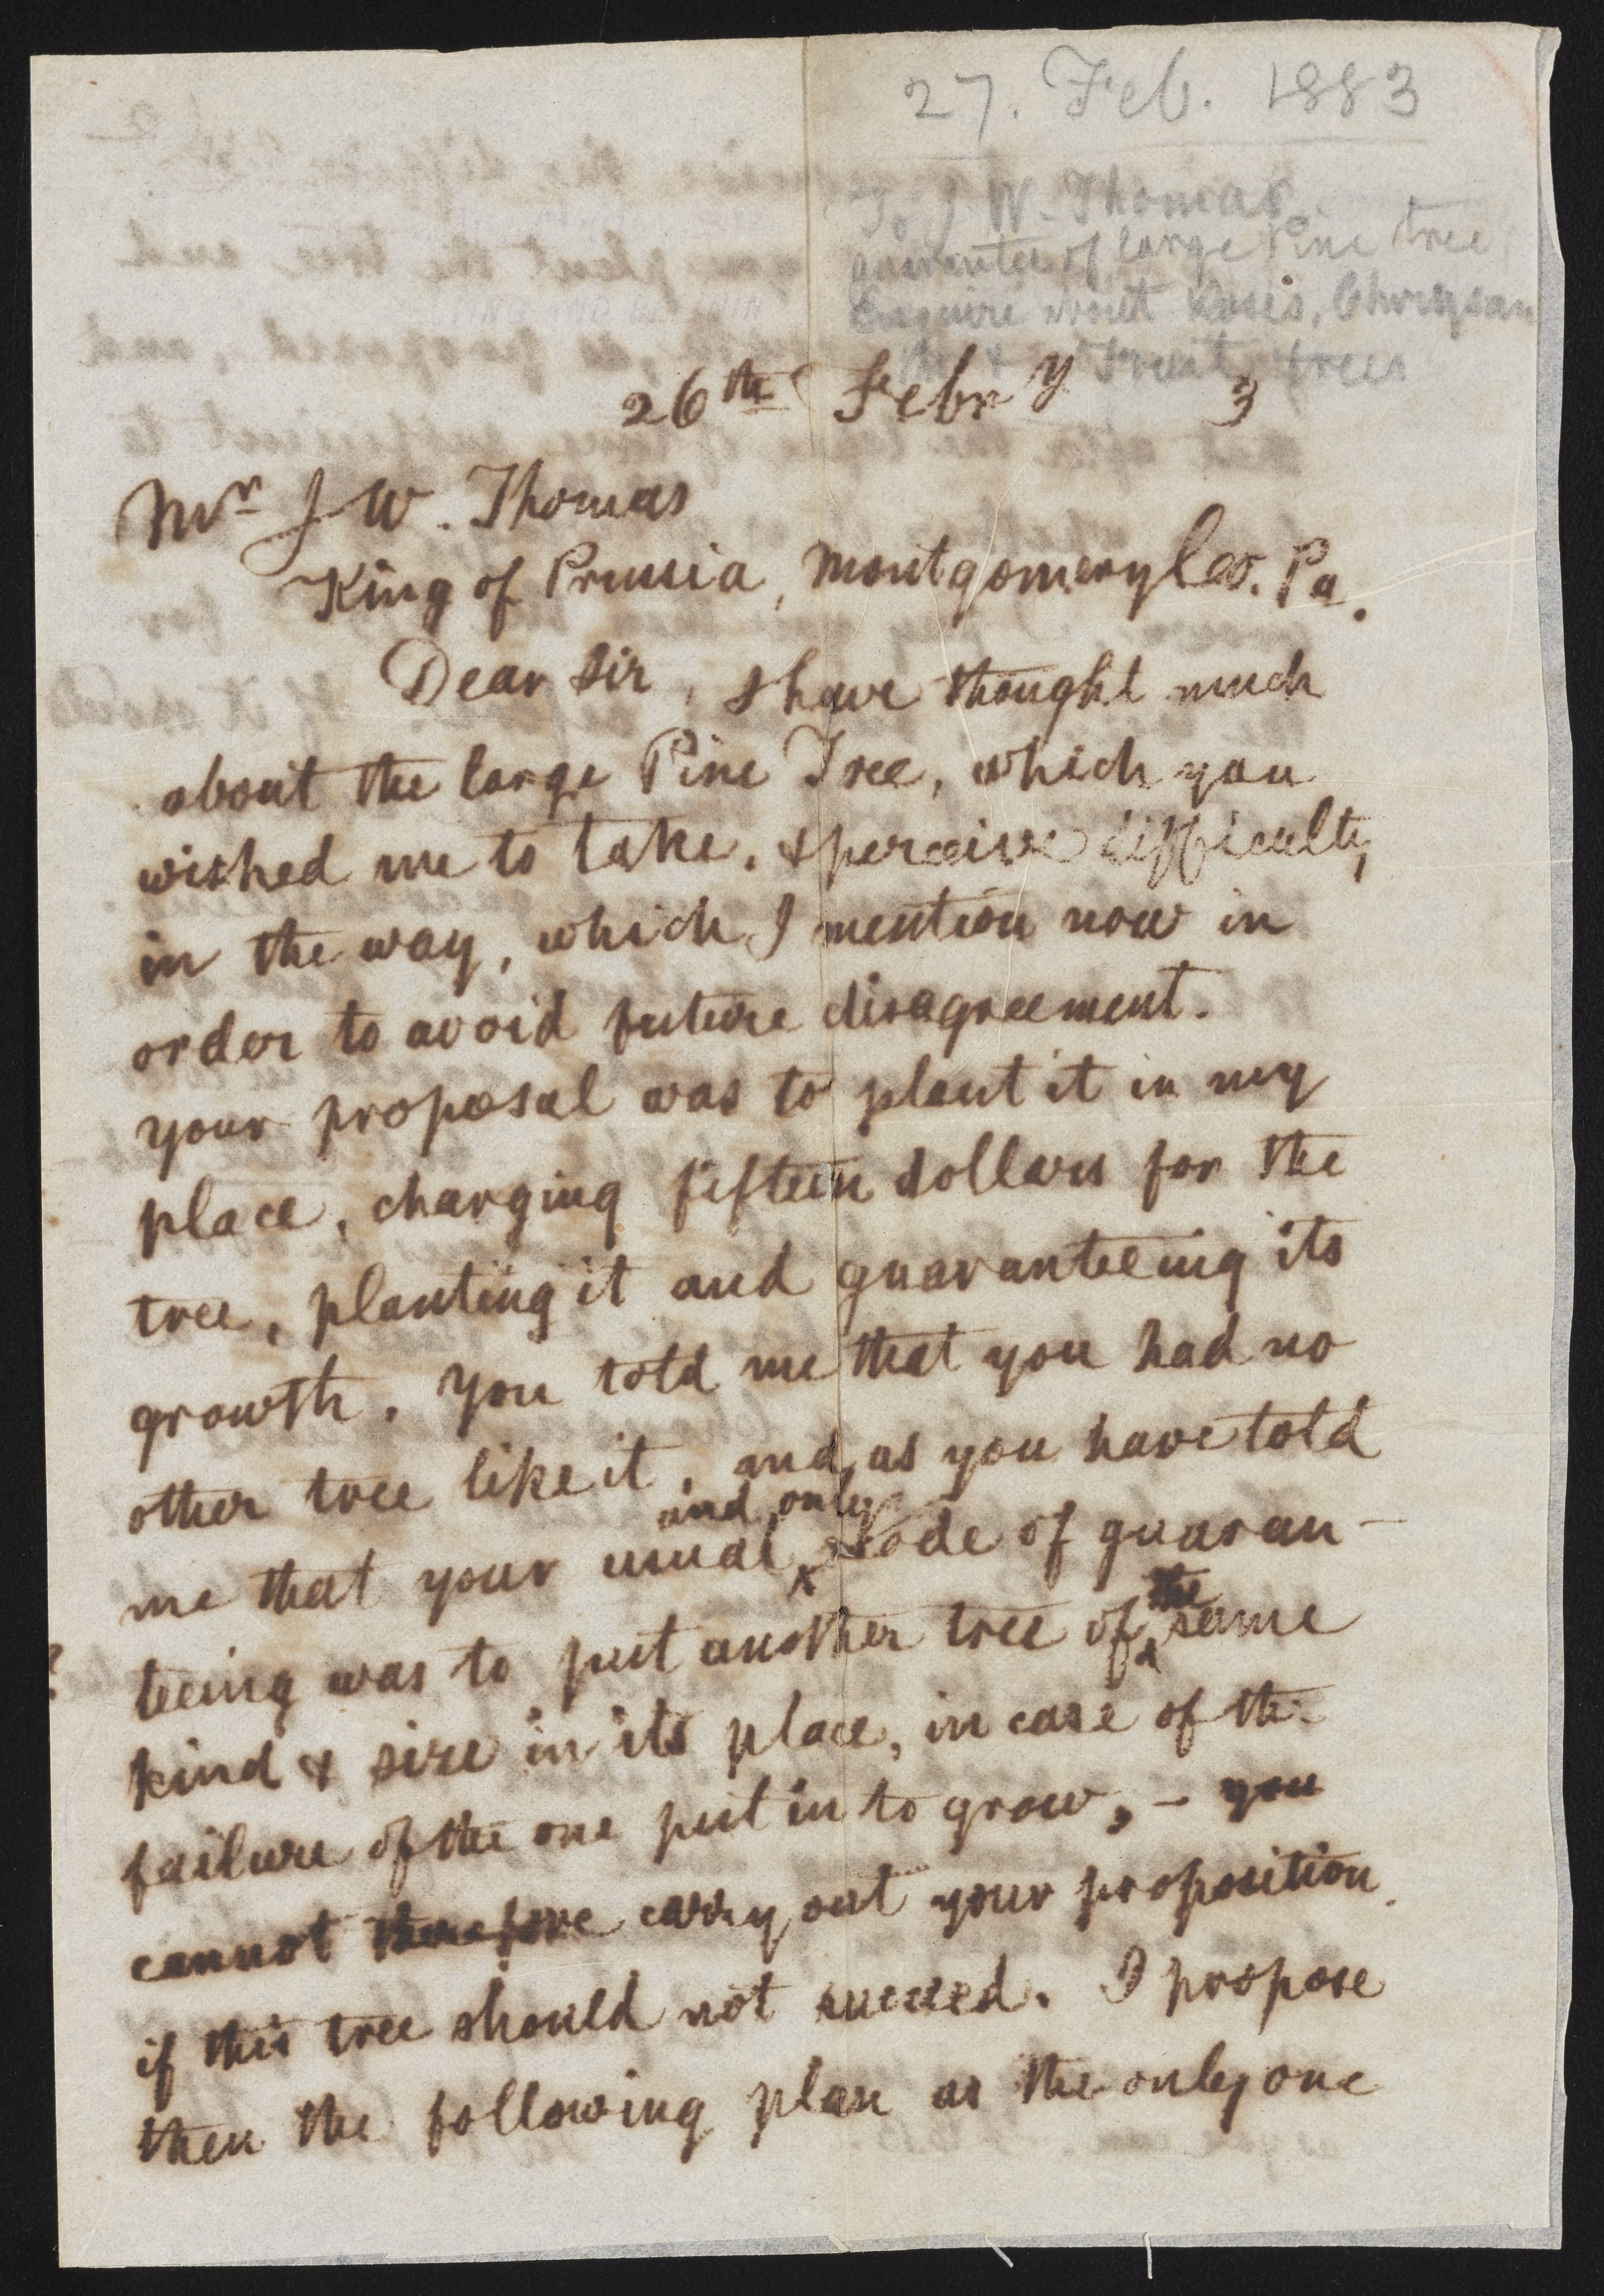 27. Feb. 1883
To J W. Thomas
guarantee of large Pine tree
Enquire about Roses, Chrysan
& Fruit trees
26th Febry 3
Mr J W. Thomas
King of Prussia, Montgomery Co. Pa.
Dear Sir, I have thought much
about the large Pine Tree, which you
wished me to take, & perceive difficulty
in the way, which I mention now in
order to avoid future disagreement.
your proposal was to plant it in my
place, charging fifteen dollars for the
tree, planting it and guaranteeing its
growth. You told me that you had no
other tree like it, and, as you have told
me that your usual and only mode of guaran-
teeing was to put another tree of the same
kind & size in its place, in case of the
failure of the one put in to grow, - you
cannot therefore carry out your proposition
if this tree should not succeed. I propose
then the following plan as the only one